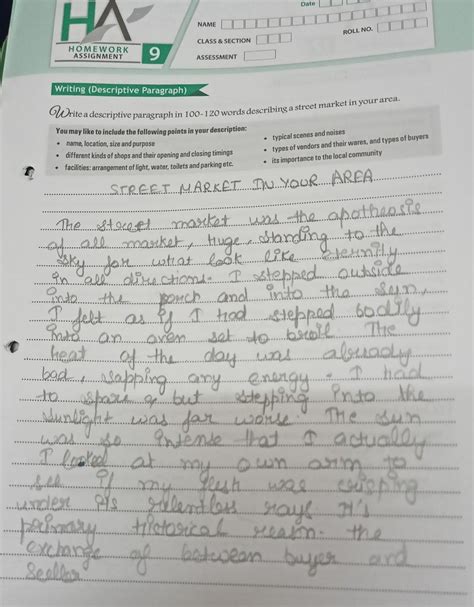 HA
HOMEWORK
ASSIGNMENT
9
Date
NAME
CLASS & SECTION
ROLL NO.
ASSESSMENT
Writing (Descriptive Paragraph)
Write a descriptive paragraph in 100-120 words describing a street market in your area.
You may like to include the following points in your description:
• name, location, size and purpose
• different kinds of shops and their opening and closing timings
• facilities: arrangement of light, water, toilets and parking etc.
• typical scenes and noises
• types of vendors and their wares, and types of buyers
• its importance to the local community
STREET MARKET IN YOUR AREA
The street market was the apotheosis
of all market, huge, standing to the
sky for what look like eternity
in all directions. I stepped outside
into the porch and into the sun,
I felt as if I had stepped bodily
into an oven set to broil. The
heat of the day was already
bad, sapping any energy. I had
to spare, but stepping into the
sunlight was far worse. The sun
was so intense that I actually
I looked at my own arm to
see if my flesh was crisping
under its relentless rays It's
primary the
exchange of between buyer and
seller